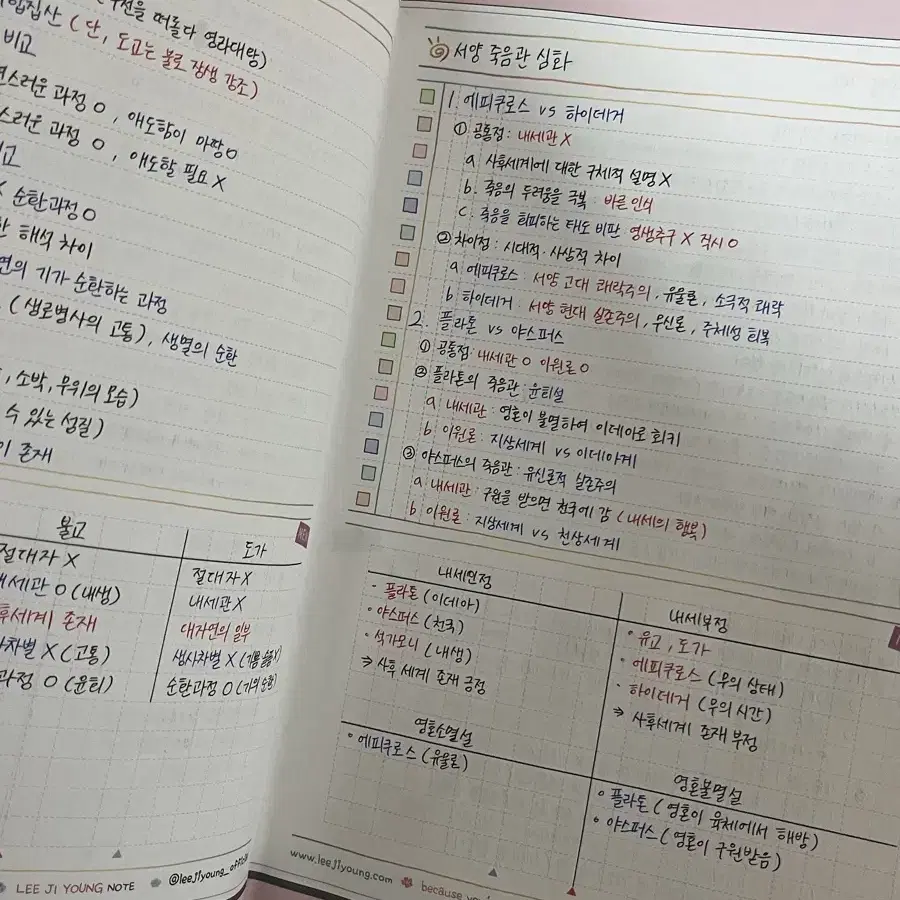 떠돌다 영라대왕)
(단, 도교는 불로장생 강조)
비교
스러운 과정 O, 애도함이 마땅 O
스러운 과정 O, 애도할 필요 X
순환과정 O
해석 차이
기가 순환하는 과정
(생로병사의 고통), 생멸의 순환
, 소박, 무위의 모습)
수 있는 성질)
존재
불교
도가
절대자 X
절대자 X
내세관 O (내생)
내세관 X
사후세계 존재
대자연의 일부
차별 X (고통)
생사차별 X
과정 O (윤회)
순환과정 O (기의 순환)
LEE JI YOUNG NOTE
서양 죽음관 심화
1. 에피쿠로스 vs 하이데거
① 공통점: 내세관 X
a. 사후세계에 대한 구체적 설명 X
b. 죽음의 두려움을 극복: 바른 인식
c. 죽음을 회피하는 태도 비판 영생추구 X 직시 O
② 차이점: 시대적·사상적 차이
a 에피쿠로스: 서양 고대 쾌락주의, 유물론, 소극적 쾌락
b 하이데거: 서양 현대 실존주의, 무신론, 주체성 회복
2. 플라톤 vs 야스퍼스
① 공통점: 내세관 O 이원론 O
② 플라톤의 죽음관: 윤회설
a 내세관: 영혼이 불멸하여 이데아로 회귀
b 이원론: 지상세계 vs 이데아계
③ 야스퍼스의 죽음관: 유신론적 실존주의
a 내세관: 구원을 받으면 천국에 감 (내세의 행복)
b 이원론: 지상세계 vs 천상세계
내세인정
· 플라톤 (이데아)
· 야스퍼스 (천국)
· 석가모니 (내생)
⇒ 사후 세계 존재 긍정
내세부정
· 유교, 도가
· 에피쿠로스 (무의 상태)
· 하이데거 (무의 시간)
⇒ 사후세계 존재 부정
영혼소멸설
· 에피쿠로스 (유물론)
영혼불멸설
· 플라톤 (영혼이 육체에서 해방)
· 야스퍼스 (영혼이 구원받음)
www.leejiyoung.com
because